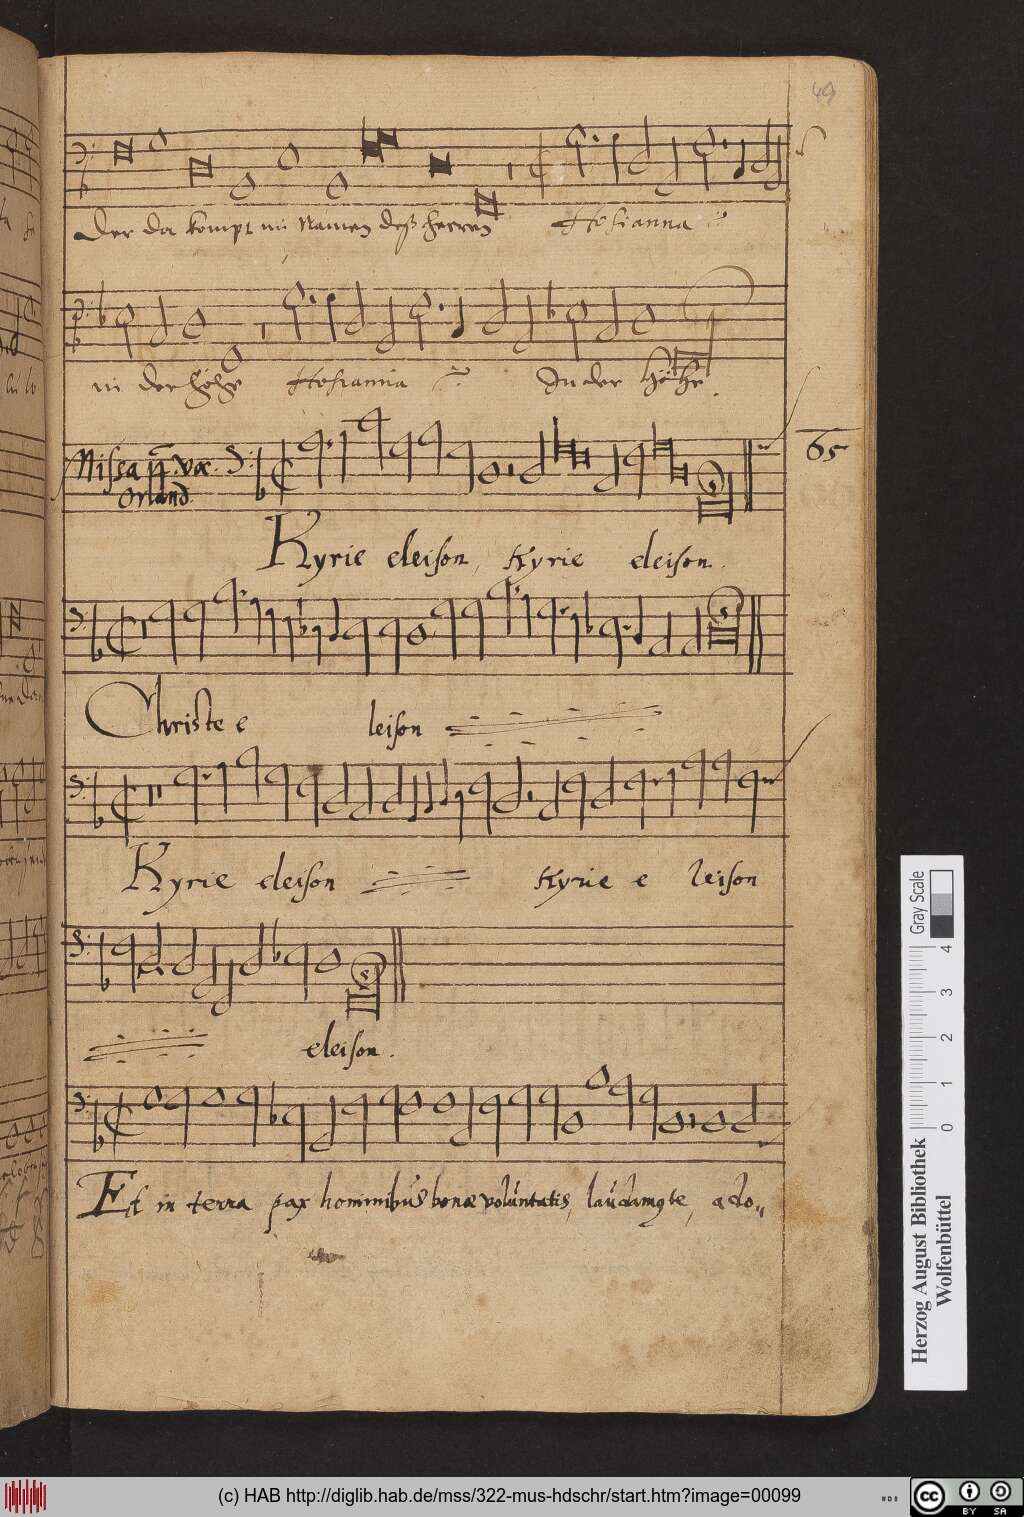 49
Der da kompt im Namen deß herren Hosianna
in der höhe Hosianna In der Höhe.
Missa 4 voc.
Orland.
65
Kyrie eleison, Kyrie eleison.
Christe e leison
Kyrie eleison Kyrie e leison
eleison.
Et in terra pax hominibus bonæ voluntatis, laudamʒ te, ado„
Gray Scale
0 1 2 3 4
Herzog August Bibliothek
Wolfenbüttel
(c) HAB http://diglib.hab.de/mss/322-mus-hdschr/start.htm?image=00099
cc BY SA